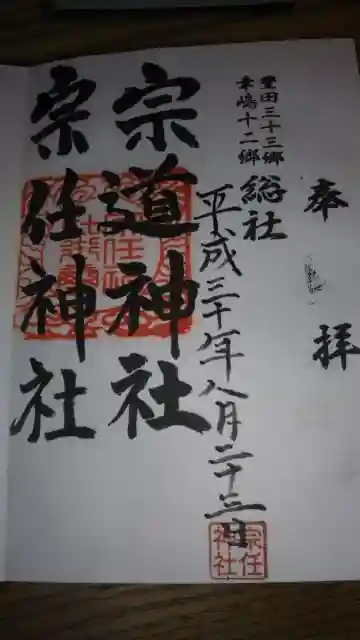 奉拝
豊田三十三郷
幸嶋十二郷
総社
平成三十年八月二十三日
宗道神社
宗任神社
宗任
神社